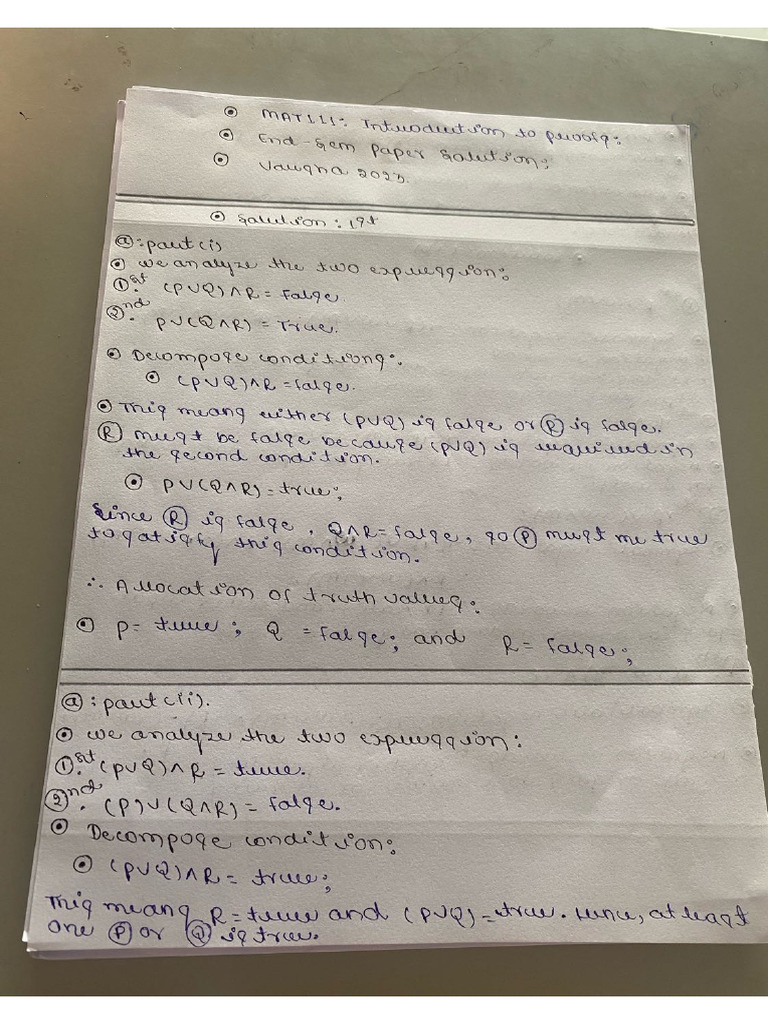 MAT111: Introduction to proofs:
End-sem paper solution;
Varsha 2023.
solution: 1st
(a): part(i)
we analyze the two expression:
1st. (P∨Q)∧R = false.
2nd. P∨(Q∧R) = True.
Decompose conditions:
(P∨Q)∧R = false.
This means either (P∨Q) is false or (R) is false.
(R) must be false because (P∨Q) is required in
the second condition.
P∨(Q∧R) = true;
Since (R) is false, Q∧R = false, so (P) must me true
to satisfy this condition.
∴ Allocation of truth values:
P = true; Q = false; and R = false;
(a): part(ii).
we analyze the two expression:
1st. (P∨Q)∧R = true.
2nd. (P)∨(Q∧R) = false.
Decompose condition:
(P∨Q)∧R = true;
This means R = true and (P∨Q) = true. Hence, at least
one (P) or (Q) is true.